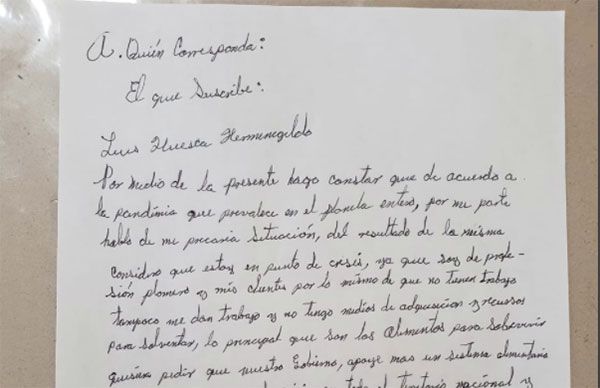 A. Quién Corresponda:
El que Suscribe:
Luis Huesca Hermenegildo
Por medio de la presente hago constar que de acuerdo a
la pandimia que prevalece en el planeta entero, por me parte
hablo de me precaria situación, del resultado de la misma
considero que estoy en punto de crisis, ya que soy de profe-
sión plomero y mis clientes por lo mismo de que no tienen trabajo
tampoco me dan trabajo y no tengo medios de adquisicion y recursos
para solventar, lo principal que son los alimentos para sobrevivir
quisiera pedir que nuestro Gobierno, apoye mas un sistema alimentario
todo el nacional y